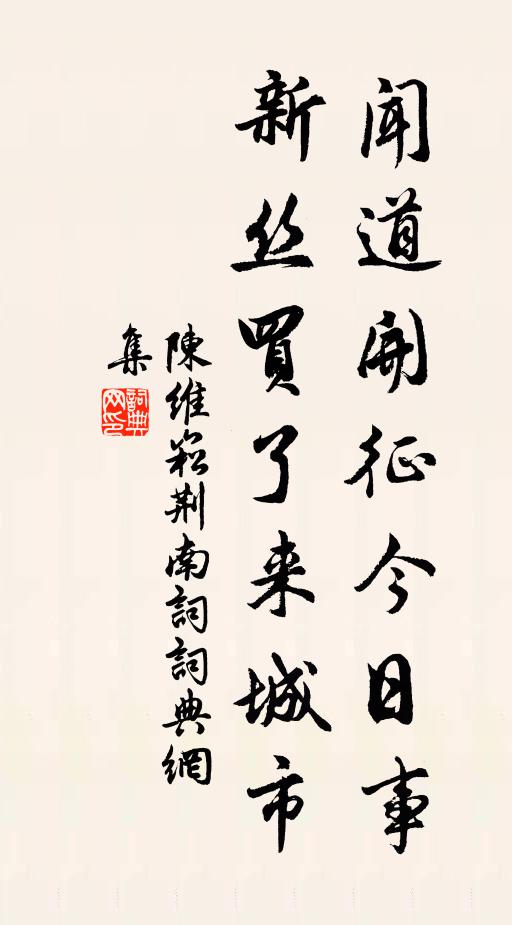 聞道開征今日事
新丝買了来城市
陳維崧荆南詞詞典網
集
詞典网印